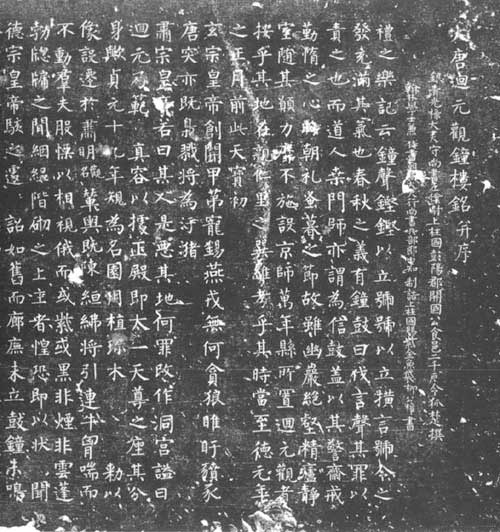 大唐迴元觀鐘樓銘并序
銀青光祿大夫守尚書左僕射上柱國彭陽郡開國公食邑二千戶令狐楚撰
翰林學士兼侍書朝議大夫行尚書兵部郎中知制誥上柱國賜紫金魚袋柳公權書
禮之樂記云鐘聲鏗鏗以立號號以立橫言號令之
發充滿其氣也春秋之義有鐘鼓曰伐言聲其罪以
責之也而道人桑門師亦謂為信鼓蓋以其警齋戒
勤惰之心時朝禮蚤暮之節故雖幽巖絕壑精廬靜
室隨其願力靡不施設京師萬年縣所置迴元觀者
按乎其地在親仁里之巽維考乎其時當至德元年
之正月前此天寶初
玄宗皇帝創開甲第寵錫燕戎無何貪狼睢盱豶豕
唐突亦既梟戮將為污豬
肅宗皇帝若曰其人是惡其地何罪改作洞宮謚曰
迴元乃範 真容以據正殿即太一天尊之座其分
身歟貞元十九年規為名園用植珍木 敕以
像設遷於肅明觀輦輿既陳絙紼將引連牛胷喘而
不動羣夫股慄以相視俄而或紫或黑非煙非雲蓬
勃窗牖之間絪縕階砌之上主者惶恐即以狀聞
德宗皇帝駭之遽 詔如舊而廊廡未立鼓鐘未鳴